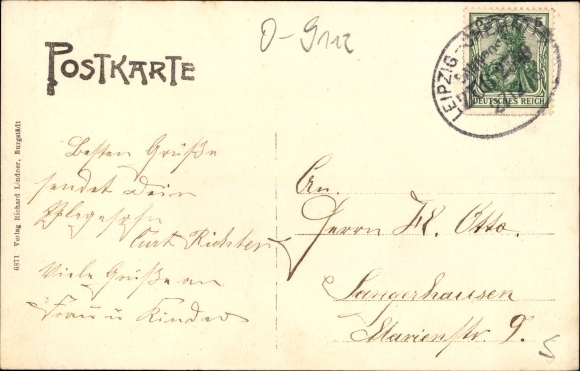 O-9112
POSTKARTE
5
LEIPZIG
DEUTSCHES REICH
Besten Grüße
sendet Dein
Pflegesohn
Curt Richter
Viele Grüße an
Frau u Kinder
An.
Herrn Fr. Otto.
Sangerhausen
Marienstr. 9.
6871 Verlag Richard Lindner, Burgstädt